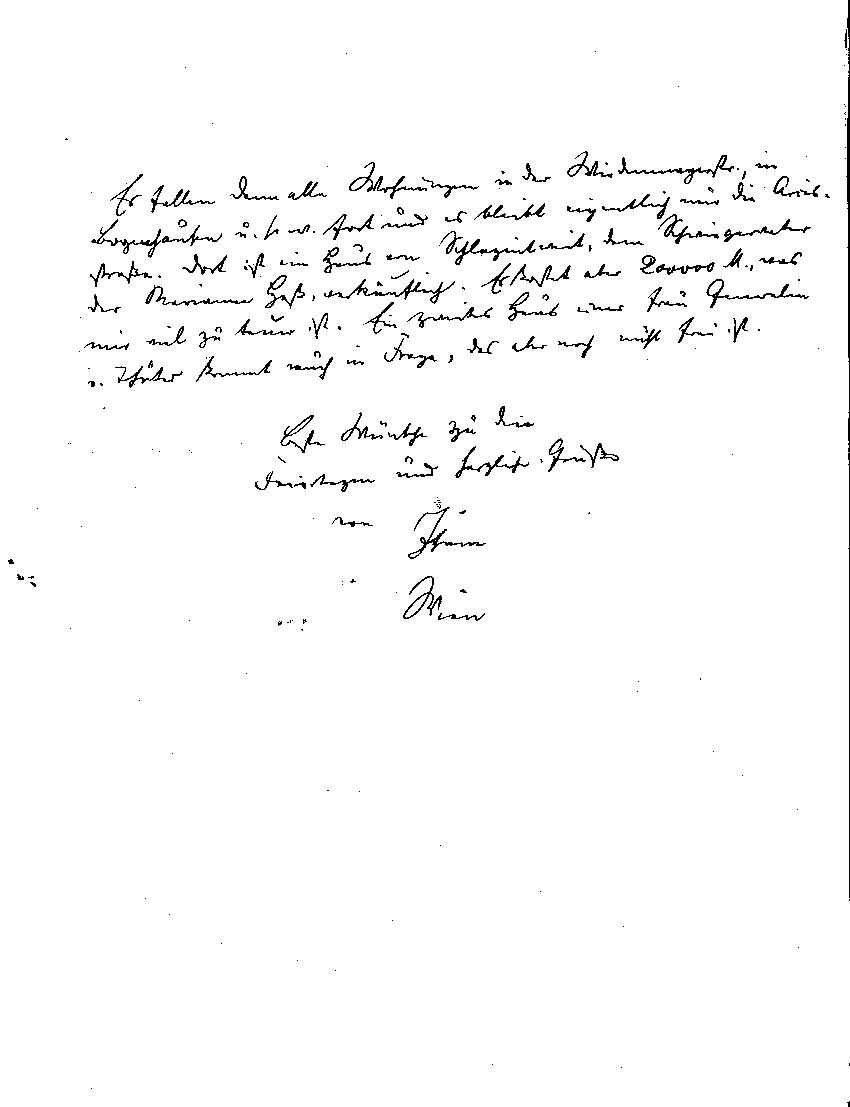 Es fallen denn alle Wohnungen in der Widenmayerstr., in
Bogenhausen u. s. w. fort und es bleibt eigentlich nur die Arcis-
straße. Dort ist ein Haus von Schlagintweit, dem Schwiegervater
der Marianne Heß, verkäuflich. Es kostet aber 200000 M., was
mir viel zu teuer ist. Ein zweites Haus einer Frau Generalin
v. Thäter kommt auch in Frage, das aber noch nicht frei ist.
Beste Wünsche zu den
Feiertagen und herzliche Grüße
von Ihrem
Wien